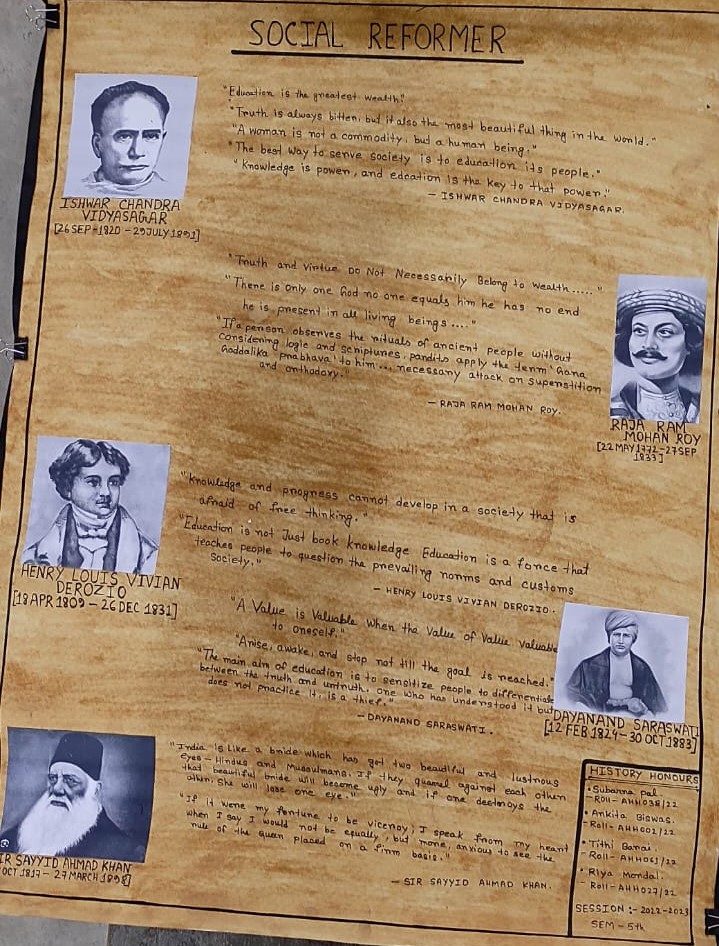 SOCIAL REFORMER
ISHWAR CHANDRA
VIDYASAGAR
[26 SEP - 1820 - 29 JULY 1891]
"Education is the greatest wealth."
"Truth is always bitten, but it also the most beautiful thing in the world."
"A woman is not a commodity, but a human being."
"The best way to serve society is to education its people."
"Knowledge is power, and edcation is the key to that power."
- ISHWAR CHANDRA VIDYASAGAR.
"Truth and Virtue Do Not Necessarily Belong to Wealth....."
"There is only one God no one equals him he has no end
he is present in all living beings...."
"If a person observes the rituals of ancient people without
considering logic and scriptures, pandits apply the term 'Gana
Gaddalika prabhava' to him... necessary attack on superstition
and orthodoxy."
- RAJA RAM MOHAN ROY.
RAJA RAM
MOHAN ROY
[22 MAY 1772 - 27 SEP
1833]
HENRY LOUIS VIVIAN
DEROZIO
[18 APR 1809 - 26 DEC 1831]
"Knowledge and progress cannot develop in a society that is
afraid of free thinking."
"Education is not Just book knowledge Education is a force that
teaches people to question the prevailing norms and customs
Society."
- HENRY LOUIS VIVIAN DEROZIO.
"A Value is Valuable When the Value of Value Valuable
to oneself."
"Arise, awake, and stop not till the goal is reached."
"The main aim of education is to sensitize people to differentiate
between the truth and untruth, one who has understood it but
does not practice it, is a thief."
- DAYANAND SARASWATI.
DAYANAND SARASWATI
[12 FEB 1824 - 30 OCT 1883]
IR SAYYID AHMAD KHAN
OCT 1817 - 27 MARCH 1898]
"India is like a bride which has got two beautiful and lustrous
eyes - Hindus and Mussulmans. If they quarrel against each other
that beautiful bride will become ugly and if one destroys the
other, she will lose one eye."
"If it were my fortune to be viceroy; I speak from my heart
when I say I would not be equally, but none, anxious to see the
rule of the quen placed on a firm basis."
- SIR SAYYID AHMAD KHAN.
HISTORY HONOURS
• Subarna pal.
- Roll - AHH038/22
• Ankita Biswas.
- Roll - AHH002/22
• Tithi Barai.
- Roll - AHH061/22
• Riya Mondal.
- Roll - AHH027/22
SESSION :- 2022-2023
SEM - 5th